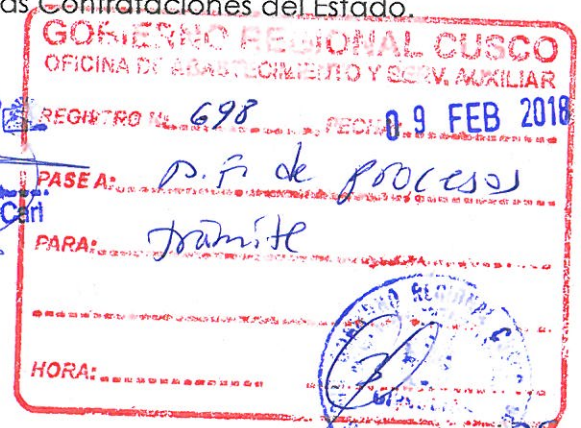 as Contrataciones del Estado.
GOBIERNO REGIONAL CUSCO
OFICINA DE ABASTECIMIENTO Y SERV. AUXILIAR
REGISTRO Nº 698 FECHA 09 FEB 2018
PASE A: de procesos
Cari
PARA: trámite
HORA: